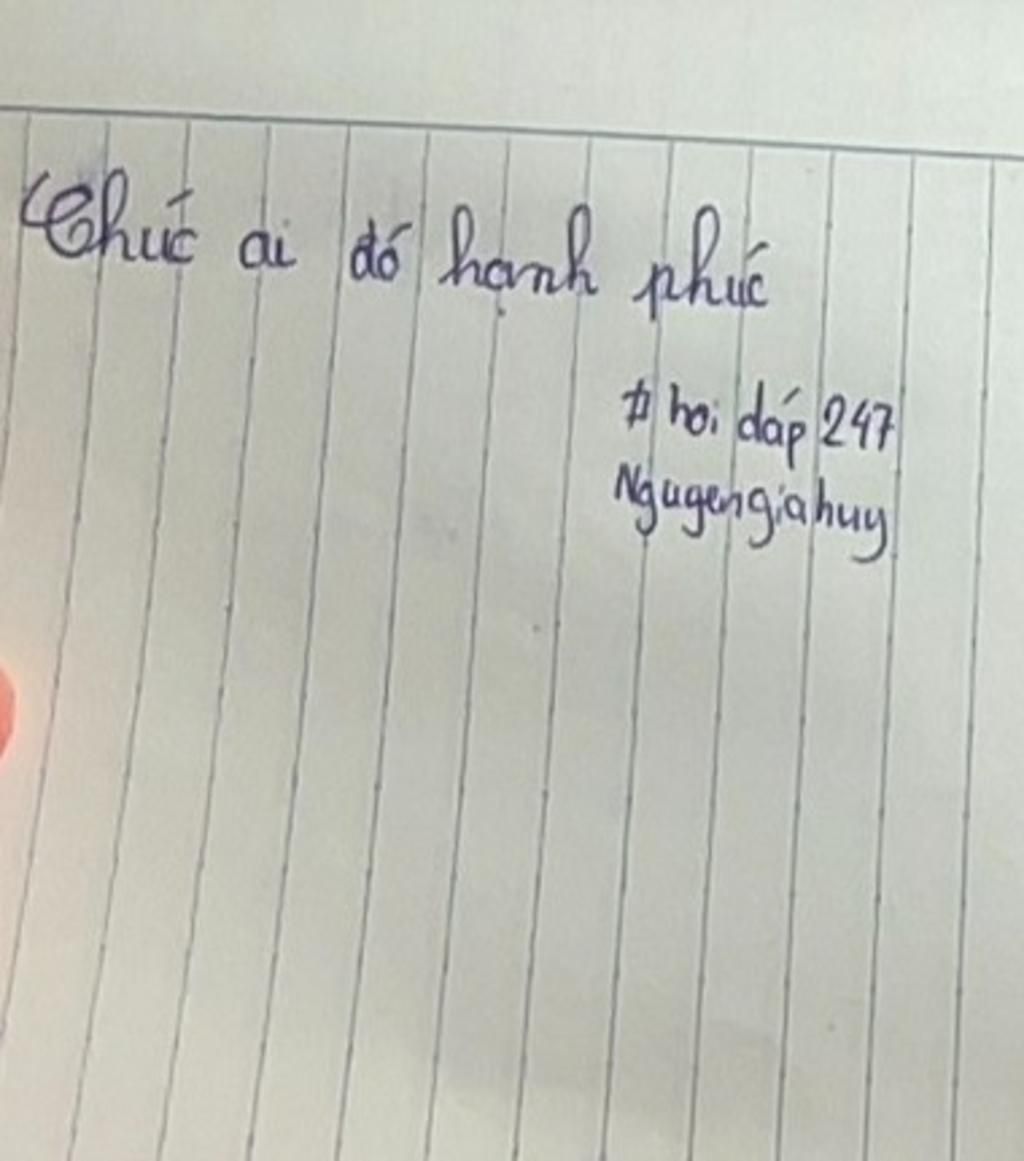 Chúc ai đó hạnh phúc
# hoi đáp 247
Nguyengiahuy